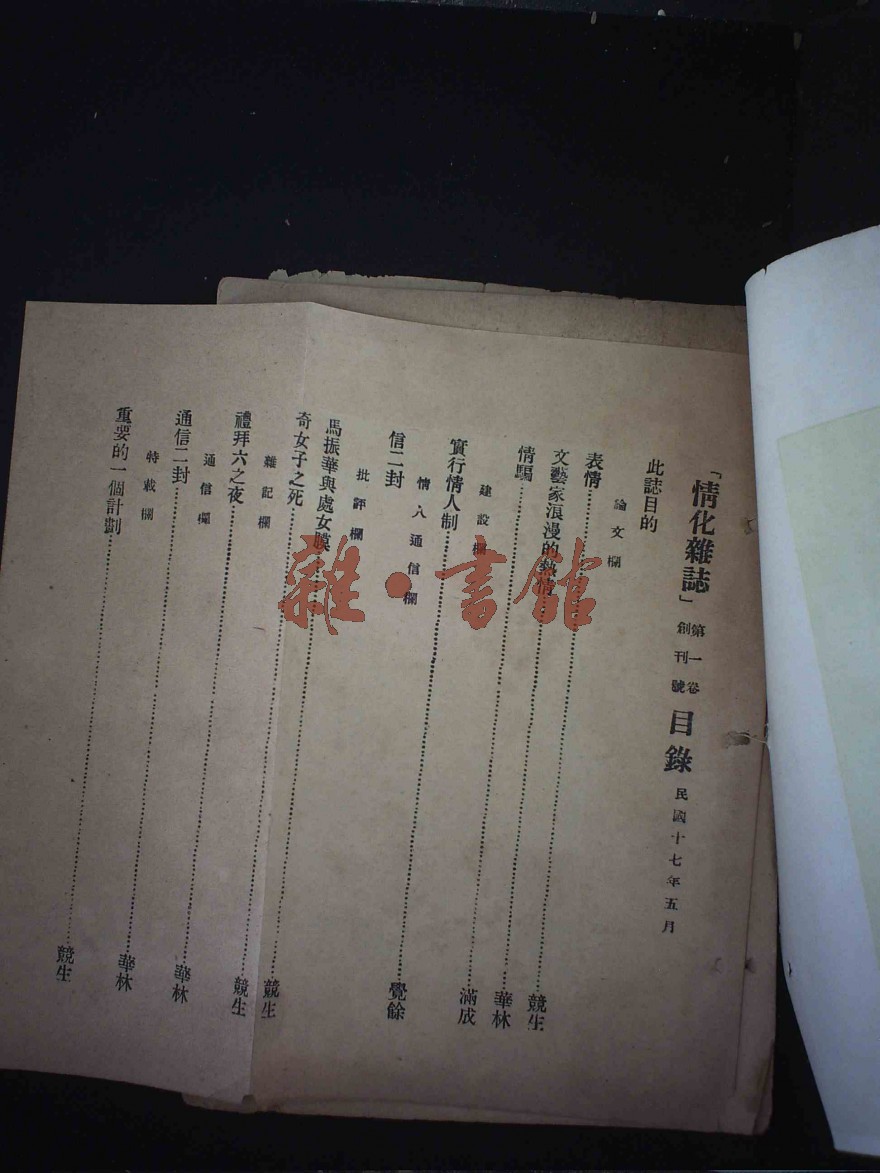 「情化雜誌」第一卷創刊號目錄民國十七年五月
此誌目的
論文欄
表情……競生
文藝家浪漫的熱情……華林
情騙……滿成
建設欄
實行情人制……覺餘
情人通信欄
信二封
批評欄
馬振華與處女膜……競生
奇女子之死……競生
雜記欄
禮拜六之夜……華林
通信欄
通信二封……華林
特載欄
重要的一個計劃……競生
雜·書館